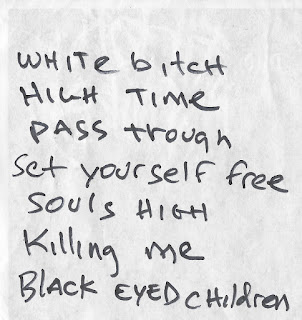 WHITE bitCH
HIGH TIME
PASS trough
Set yourself free
SOULS HIGH
Killing me
BLACK EYED CHildren